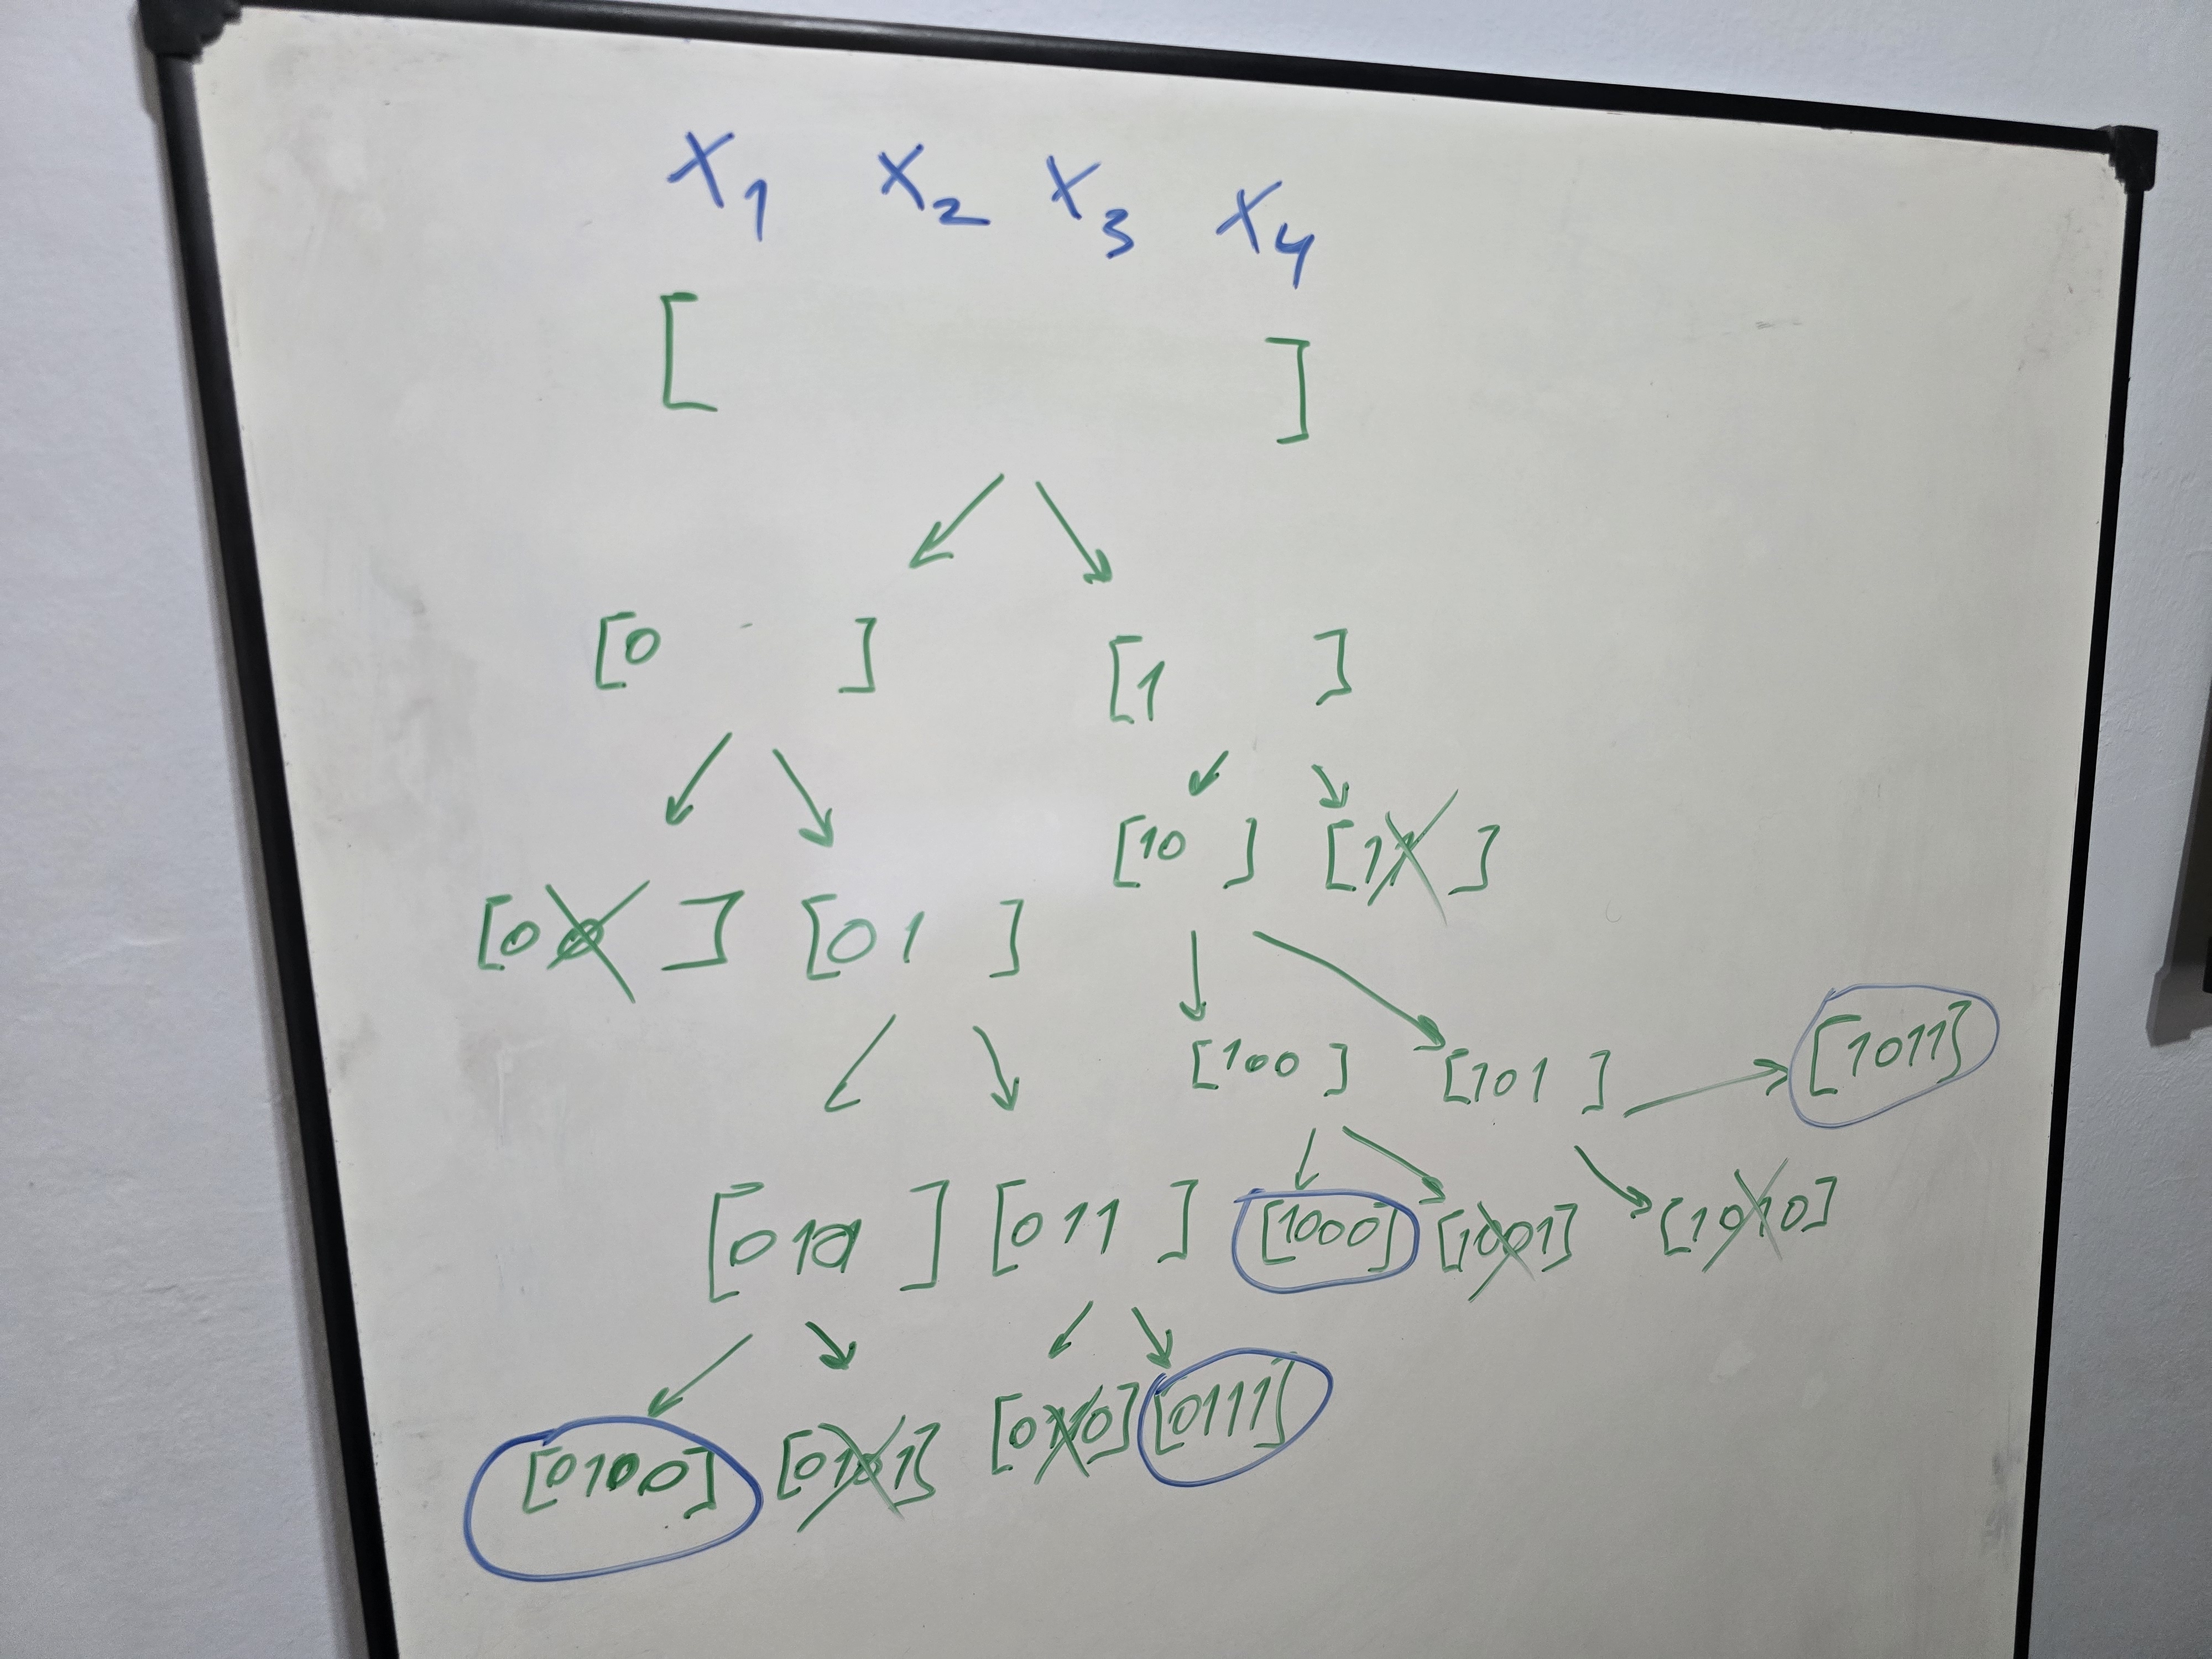 X1 X2 X3 X4
[ ]
[0 ] [1 ]
[10 ] [11 ]
[00 ] [01 ]
[100 ] [101 ] [1011]
[010 ] [011 ] [1000] [1001] [1010]
[0100] [0101] [0110] [0111]